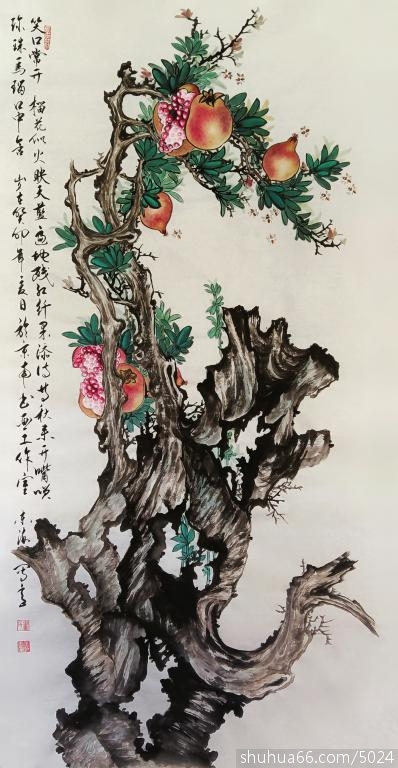 笑口常开 榴花似火映天蓝遍地残红籽果添待等秋来开嘴哄
珍珠马瑙口中含 岁在癸卯年夏日於京南书画工作室
写意
shuhua66.com/5024